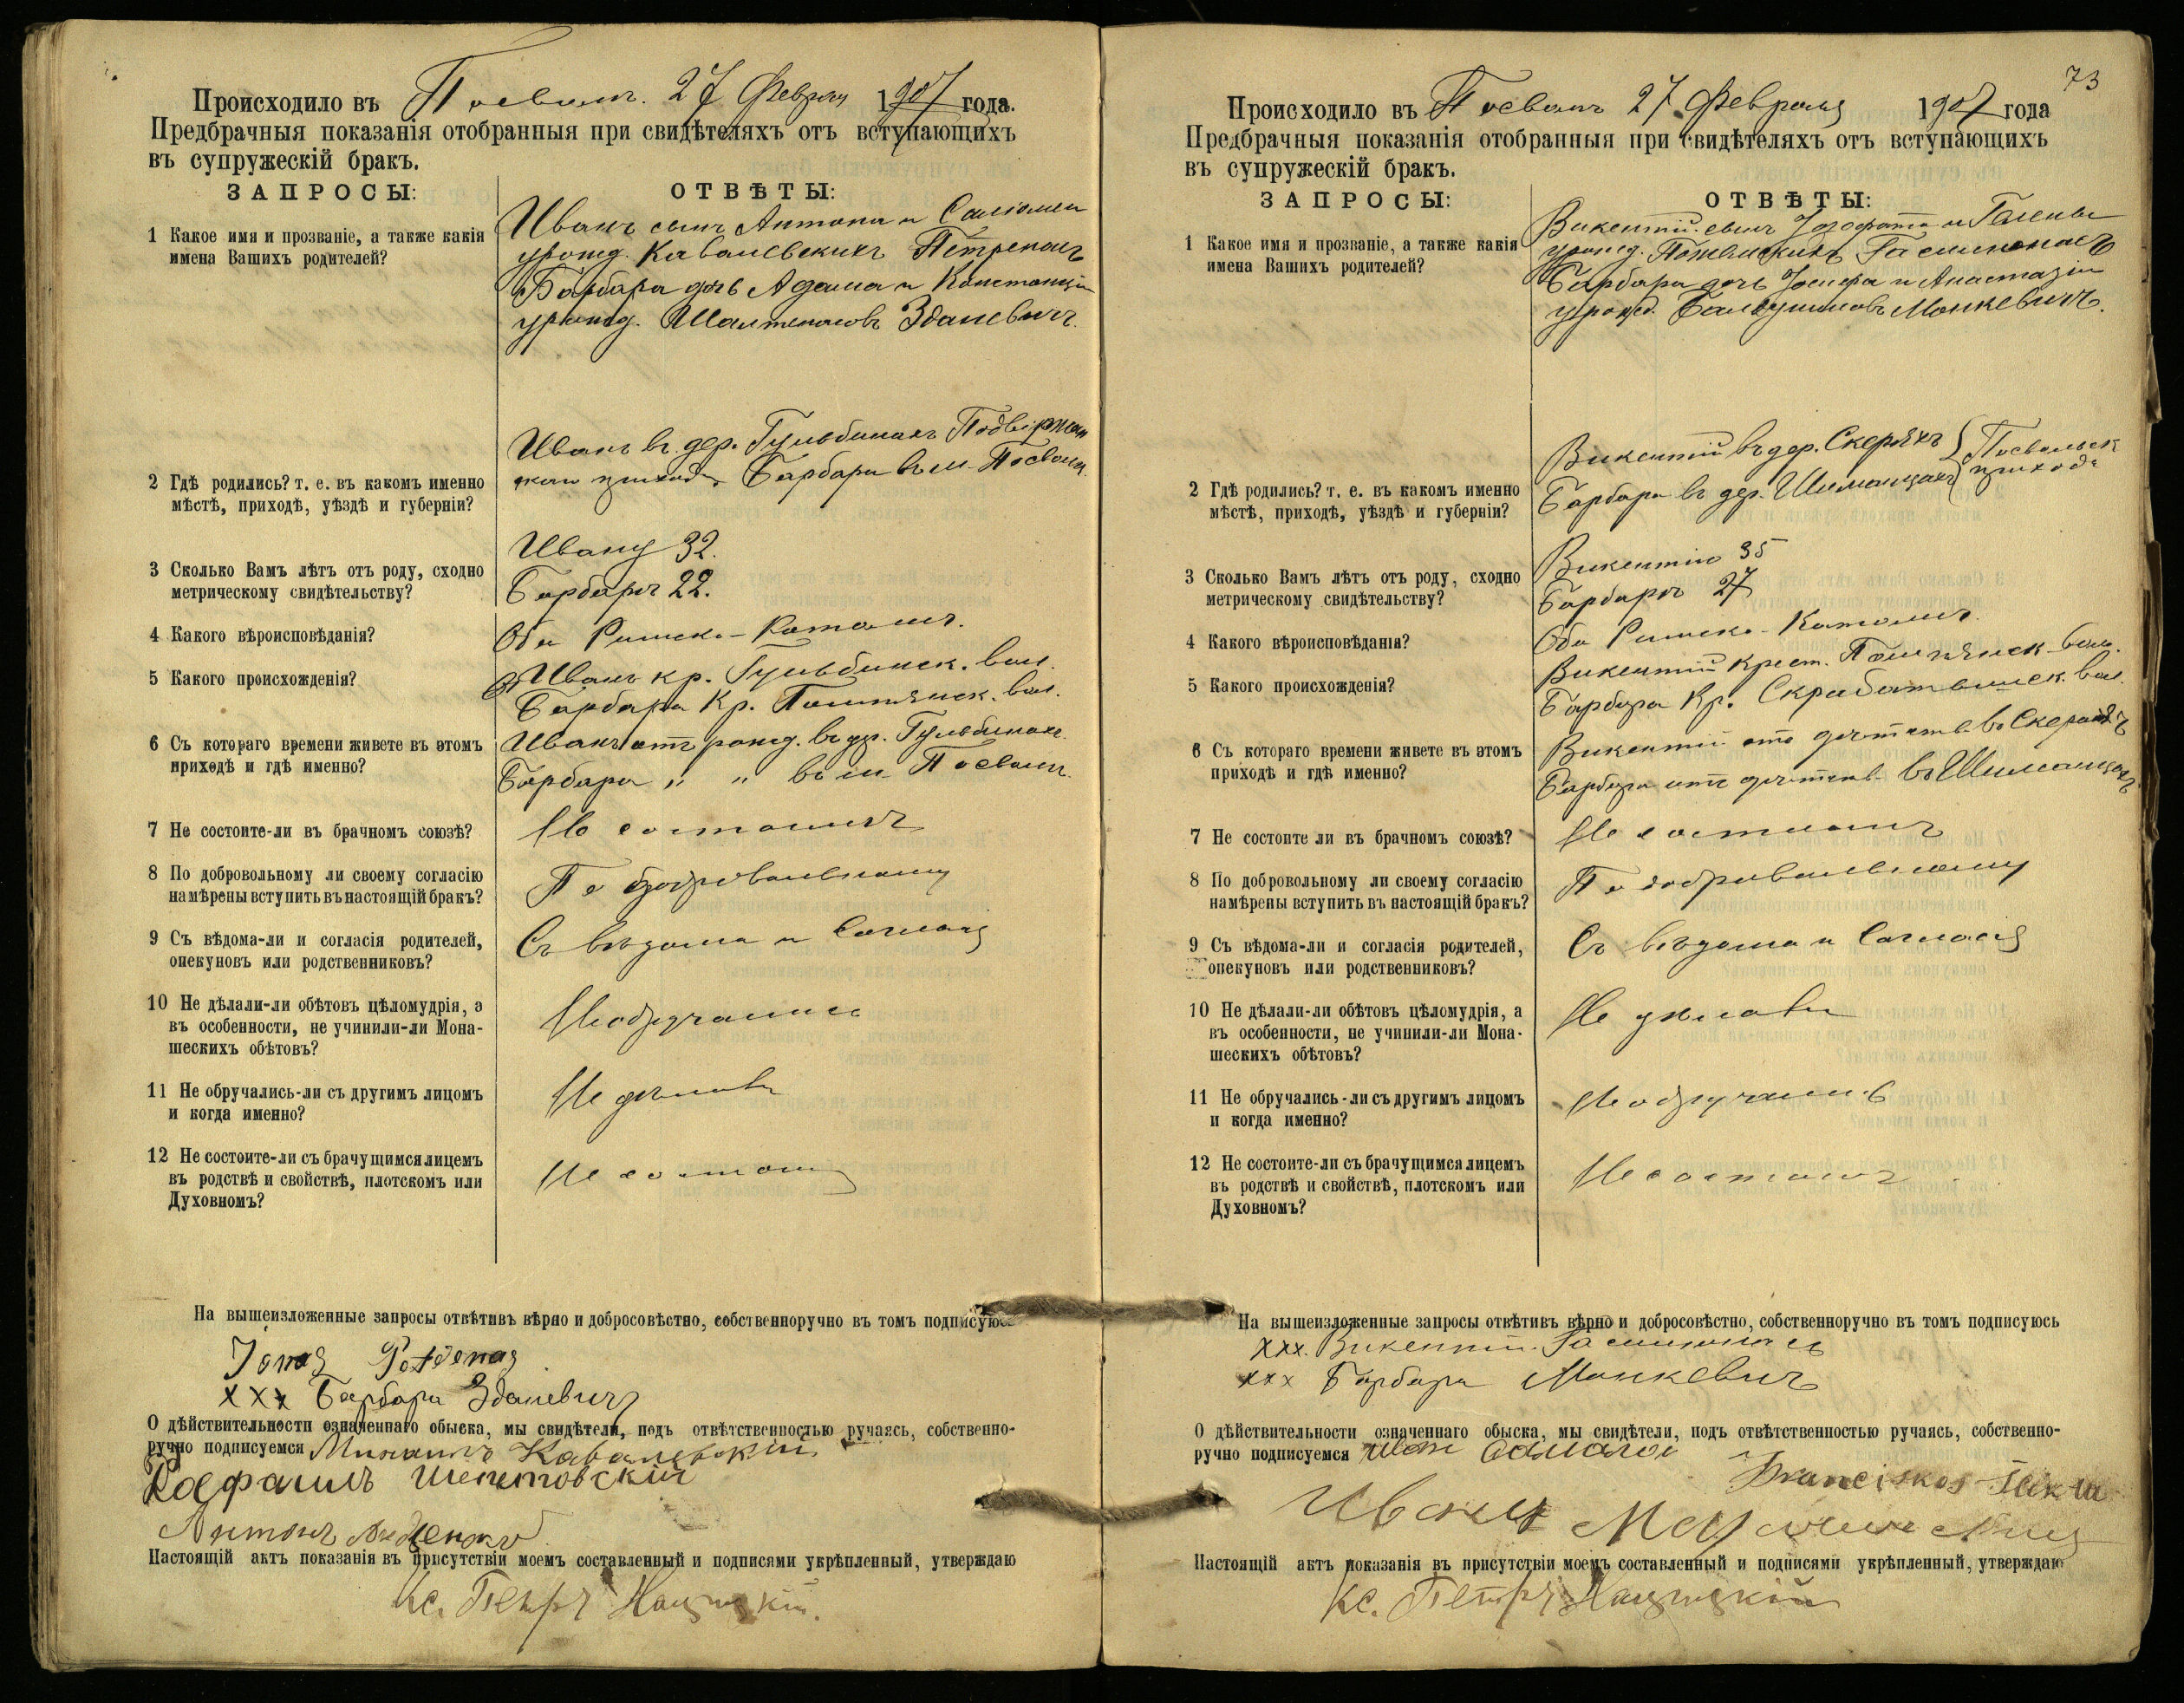 Происходило въ Посволѣ. 27 Февраля 1907 года.
Предбрачныя показанія отобранныя при свидѣтеляхъ отъ вступающихъ
въ супружескій бракъ.
ЗАПРОСЫ: ОТВѢТЫ:
1 Какое имя и прозваніе, а также какія
имена Вашихъ родителей?
Иванъ сынъ Антона и Саломеи
урожд. Кавалевскихъ Петренасъ
Барбара дочь Адама и Констанціи
урожд. Шалтенасовъ Зданевичъ.
2 Гдѣ родились? т. е. въ какомъ именно
мѣстѣ, приходѣ, уѣздѣ и губерніи?
Иванъ въ дер. Гульбинахъ
прихода, Барбара въ м. Посволѣ
3 Сколько Вамъ лѣтъ отъ роду, сходно
метрическому свидѣтельству?
Ивану 32.
Барбарѣ 22.
4 Какого вѣроисповѣданія?
Оба Римско-Католич.
5 Какого происхожденія?
Иванъ кр. Гульбинск. вол.
Барбара Кр. Помпянск. вол.
6 Съ котораго времени живете въ этомъ
приходѣ и гдѣ именно?
Иванъ отъ рожд. въ др. Гульбинахъ
Барбара „ „ въ м. Посволѣ.
7 Не состоите-ли въ брачномъ союзѣ?
Не состоимъ
8 По добровольному ли своему согласію
намѣрены вступить въ настоящій бракъ?
По добровольному
9 Съ вѣдома-ли и согласія родителей,
опекуновъ или родственниковъ?
Съ вѣдома и Согласія
10 Не дѣлали-ли обѣтовъ цѣломудрія, а
въ особенности, не учинили-ли Мона-
шескихъ обѣтовъ?
Не обручались
11 Не обручались-ли съ другимъ лицомъ
и когда именно?
Не дѣлали
12 Не состоите-ли съ брачущимся лицемъ
въ родствѣ и свойствѣ, плотскомъ или
Духовномъ?
Не состоимъ
На вышеизложенные запросы отвѣтивъ вѣрно и добросовѣстно, собственноручно въ томъ подписуюсь
Jonas
ххх Барбара Зданевичъ
О дѣйствительности означеннаго обыска, мы свидѣтели, подъ отвѣтственностью ручаясь, собственно-
ручно подписуемся Михаилъ Кавалевскій
Рафаилъ Шепетовскій
Антонъ
Настоящій актъ показанія въ присутствіи моемъ составленный и подписями укрѣпленный, утверждаю
Кс. Петръ
73
Происходило въ Посволѣ 27 Февраля 1907 года
Предбрачныя показанія отобранныя при свидѣтеляхъ отъ вступающихъ
въ супружескій бракъ.
ЗАПРОСЫ: ОТВѢТЫ:
1 Какое имя и прозваніе, а также какія
имена Вашихъ родителей?
Викентій сынъ Іозофата и Гелены
урожд.
Барбара дочь Іосифа и Анастазіи
урожд. Балтушисовъ Монкевичъ.
2 Гдѣ родились? т. е. въ какомъ именно
мѣстѣ, приходѣ, уѣздѣ и губерніи?
Викентій въ дер. Скеряхъ } Посвольск
Барбара въ дер. Шиманцахъ } прихода
3 Сколько Вамъ лѣтъ отъ роду, сходно
метрическому свидѣтельству?
Викентію 35
Барбарѣ 27
4 Какого вѣроисповѣданія?
Оба Римско-Католич.
5 Какого происхожденія?
Викентій крест. Помпянск. вол.
Барбара Кр. Скрабатышск. вол.
6 Съ котораго времени живете въ этомъ
приходѣ и гдѣ именно?
Викентій отъ дѣтства въ Скеряхъ
Барбара отъ дѣтств. въ Шиманцахъ
7 Не состоите ли въ брачномъ союзѣ?
Не состоимъ
8 По добровольному ли своему согласію
намѣрены вступить въ настоящій бракъ?
По добровольному
9 Съ вѣдома-ли и согласія родителей,
опекуновъ или родственниковъ?
Съ вѣдома и Согласія
10 Не дѣлали-ли обѣтовъ цѣломудрія, а
въ особенности, не учинили-ли Мона-
шескихъ обѣтовъ?
Не дѣлали
11 Не обручались-ли съ другимъ лицомъ
и когда именно?
Не обручались
12 Не состоите-ли съ брачущимся лицемъ
въ родствѣ и свойствѣ, плотскомъ или
Духовномъ?
Не состоимъ
На вышеизложенные запросы отвѣтивъ вѣрно и добросовѣстно, собственноручно въ томъ подписуюсь
ххх. Викентій
ххх Барбара Монкевичъ
О дѣйствительности означеннаго обыска, мы свидѣтели, подъ отвѣтственностью ручаясь, собственно-
ручно подписуемся Иванъ
Franciskos
Иванъ
Настоящій актъ показанія въ присутствіи моемъ составленный и подписями укрѣпленный, утверждаю
Кс. Петръ